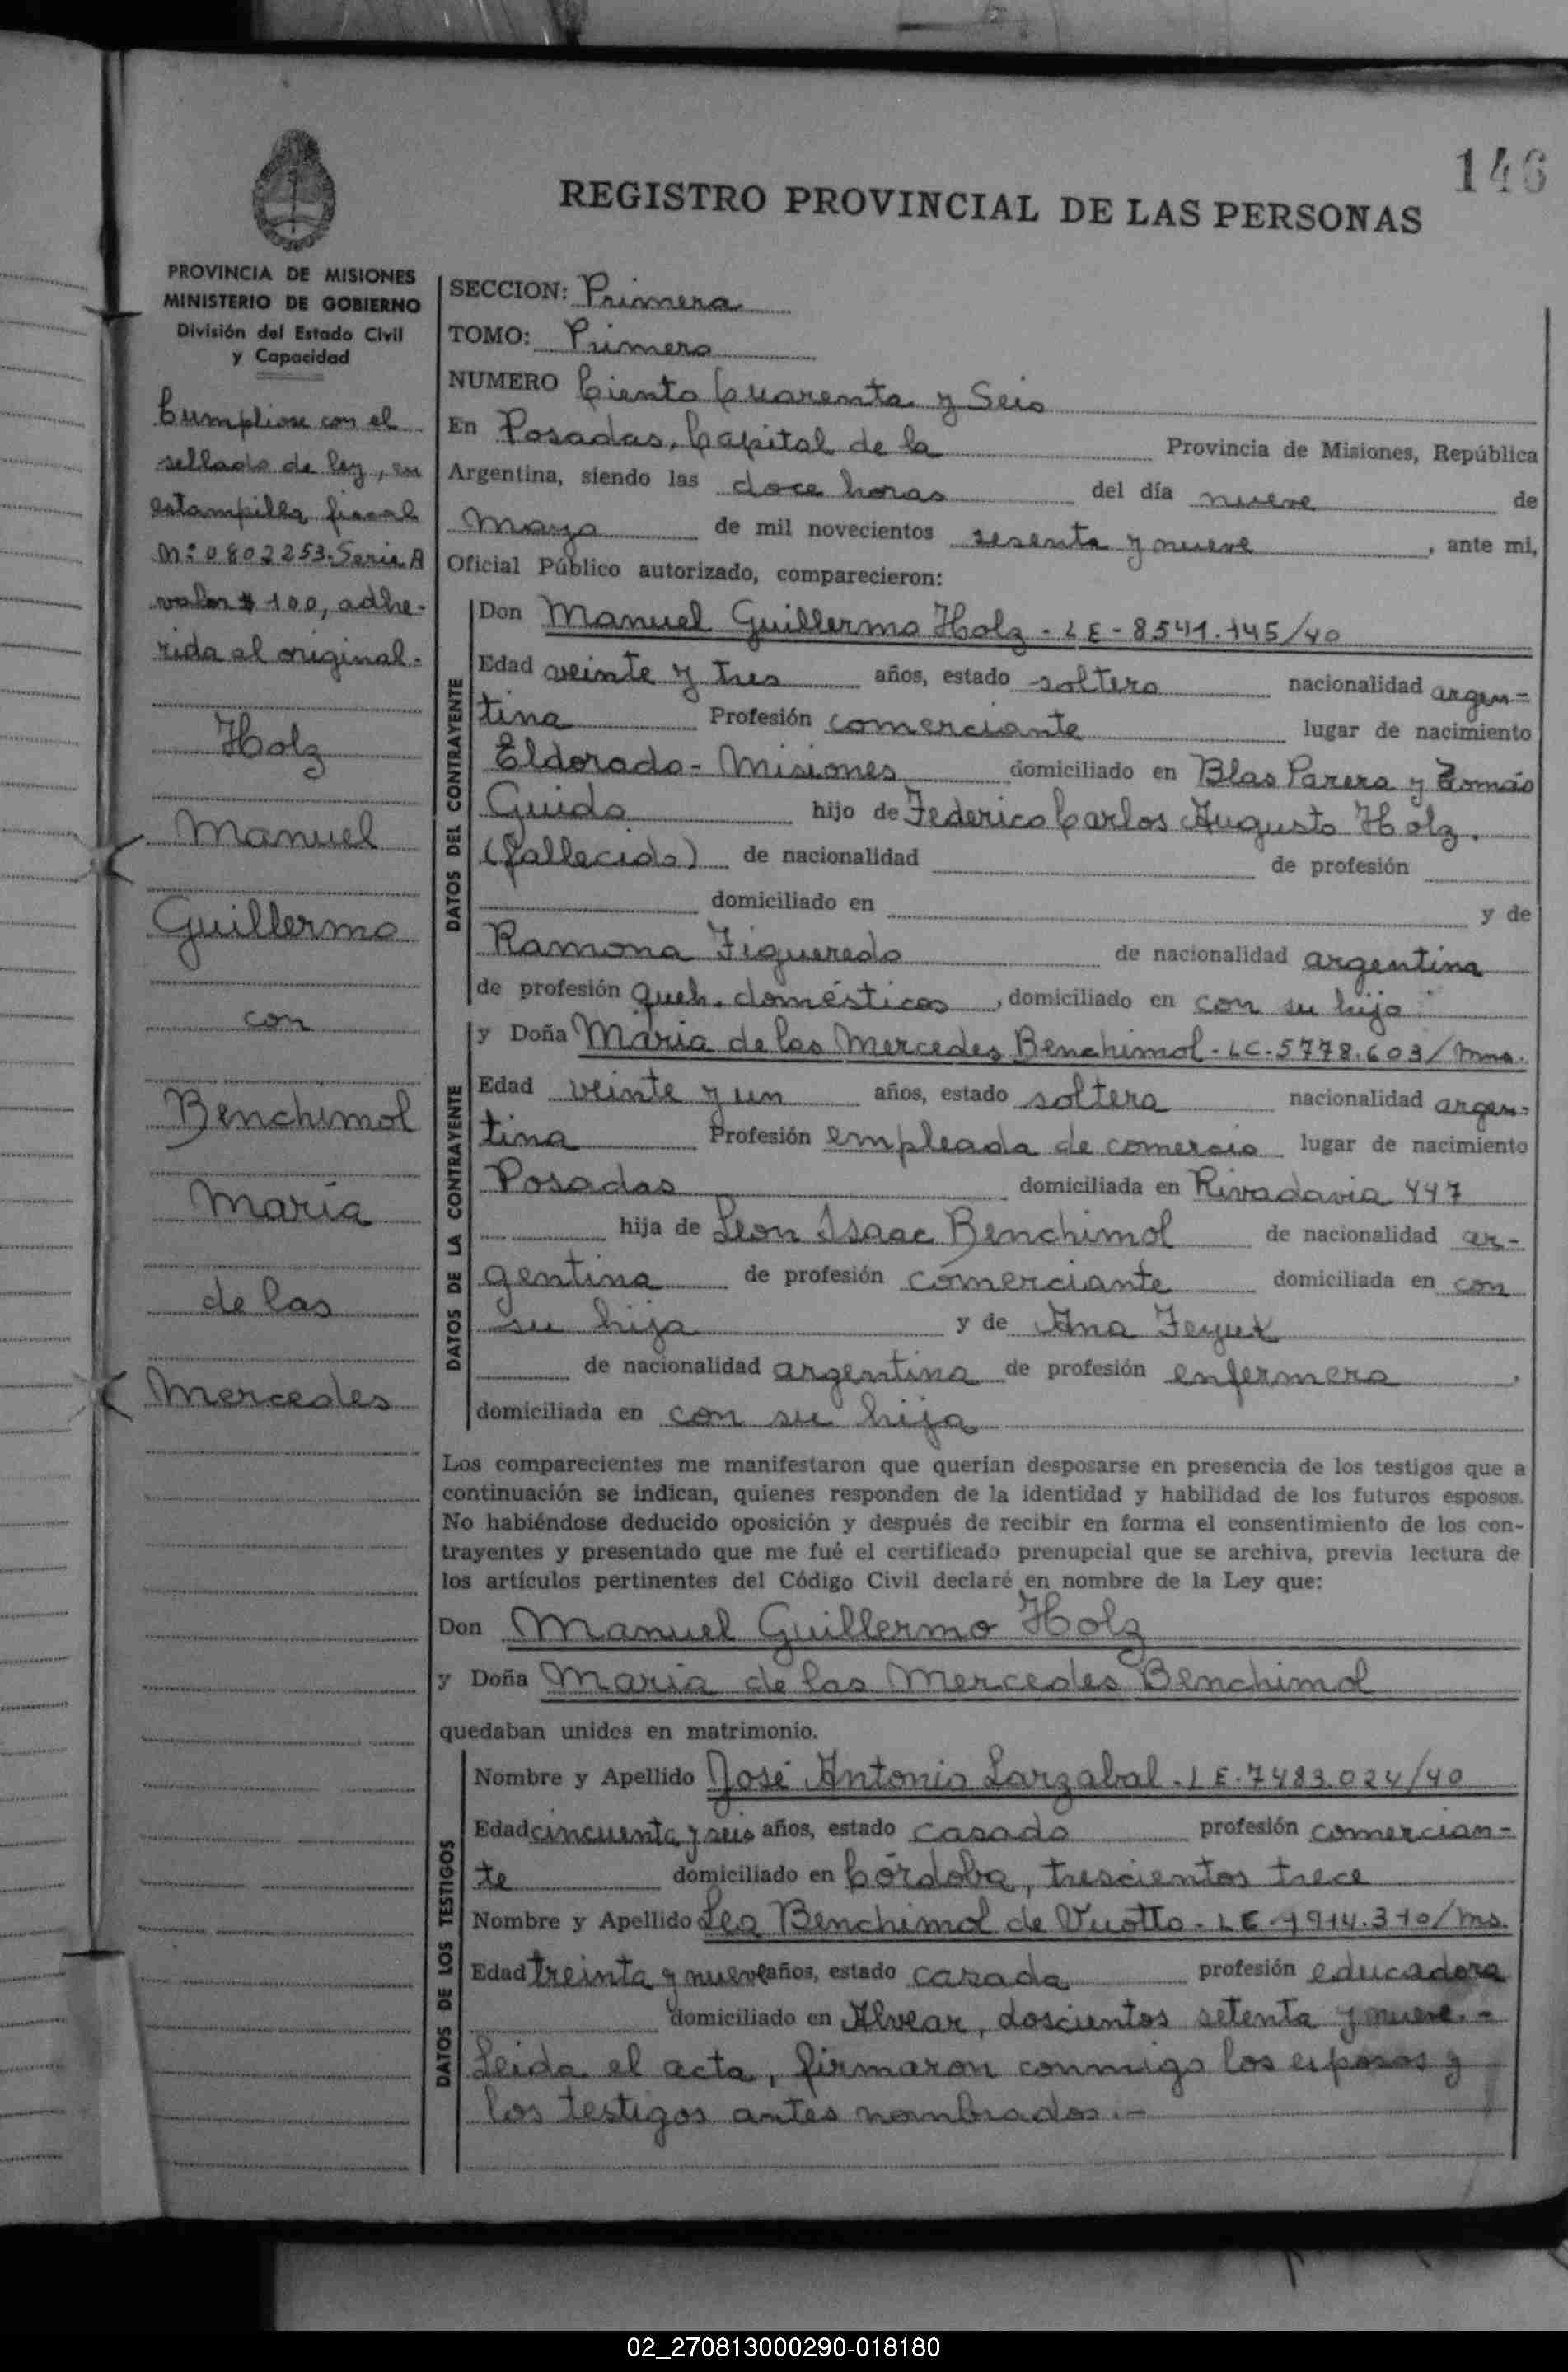 146
REGISTRO PROVINCIAL DE LAS PERSONAS
PROVINCIA DE MISIONES
MINISTERIO DE GOBIERNO
División del Estado Civil
y Capacidad
Cumpliose con el
sellado de ley, en
estampilla fiscal
Nº 0802253-Serie A
valor $ 100, adhe-
rida al original.
Holz
Manuel
Guillermo
con
Benchimol
María
de las
Mercedes
SECCION: Primera
TOMO: Primero
NUMERO Ciento Cuarenta y Seis
En Posadas, Capital de la Provincia de Misiones, República
Argentina, siendo las doce horas del día nueve de
Mayo de mil novecientos sesenta y nueve, ante mi,
Oficial Público autorizado, comparecieron:
DATOS DEL CONTRAYENTE
Don Manuel Guillermo Holz - LE - 8541.145/40
Edad veinte y tres años, estado soltero nacionalidad argen-
tina Profesión comerciante lugar de nacimiento
Eldorado - Misiones domiciliado en Blas Parera y Tomás
Guido hijo de Federico Carlos Augusto Holz.
(fallecido) de nacionalidad de profesión
domiciliado en y de
Ramona Figueredo de nacionalidad argentina
de profesión queh. domésticos, domiciliado en con su hijo
DATOS DE LA CONTRAYENTE
y Doña María de las Mercedes Benchimol - LC - 5778.603/Mns.
Edad veinte y un años, estado soltera nacionalidad argen-
tina Profesión empleada de comercio lugar de nacimiento
Posadas domiciliada en Rivadavia 447
hija de Leon Isaac Benchimol de nacionalidad ar-
gentina de profesión comerciante domiciliada en con
su hija y de Ana
de nacionalidad argentina de profesión enfermera,
domiciliada en con su hija
Los comparecientes me manifestaron que querían desposarse en presencia de los testigos que a
continuación se indican, quienes responden de la identidad y habilidad de los futuros esposos.
No habiéndose deducido oposición y después de recibir en forma el consentimiento de los con-
trayentes y presentado que me fué el certificado prenupcial que se archiva, previa lectura de
los artículos pertinentes del Código Civil declaré en nombre de la Ley que:
Don Manuel Guillermo Holz
y Doña María de las Mercedes Benchimol
quedaban unidos en matrimonio.
DATOS DE LOS TESTIGOS
Nombre y Apellido José Antonio Larzabal - LE - 7483.024/40
Edad cincuenta y seis años, estado casado profesión comercian-
te domiciliado en Córdoba, trescientos trece
Nombre y Apellido Lea Benchimol de Vuotto - LE - 1914.310/ms.
Edad treinta y nueve años, estado casada profesión educadora
domiciliado en Alvear, doscientos setenta y nueve.-
Leida el acta, firmaron conmigo los esposos y
los testigos antes nombrados.-
02_270813000290-018180